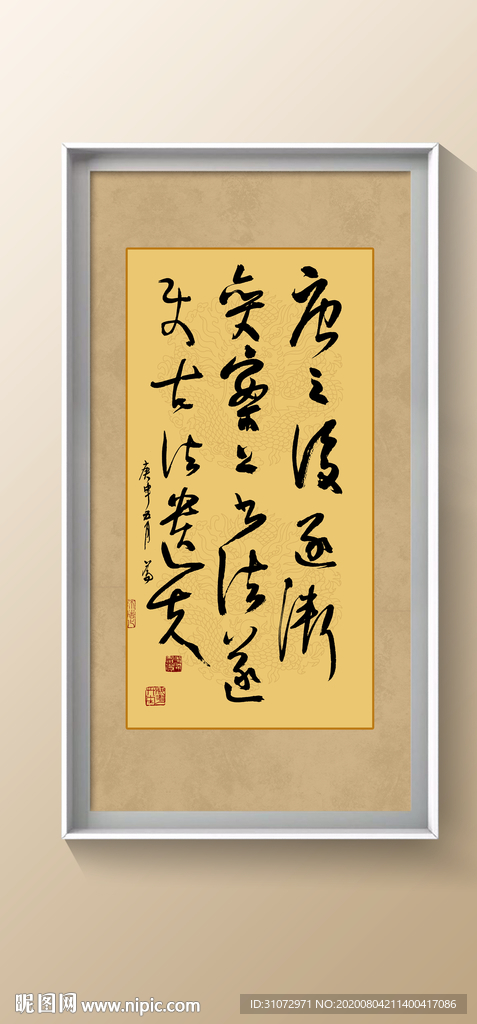 唐之後逐漸
案上书法遂
古法遗
庚申五月
昵图网 www.nipic.com
ID:31072971 NO:20200804211400417086